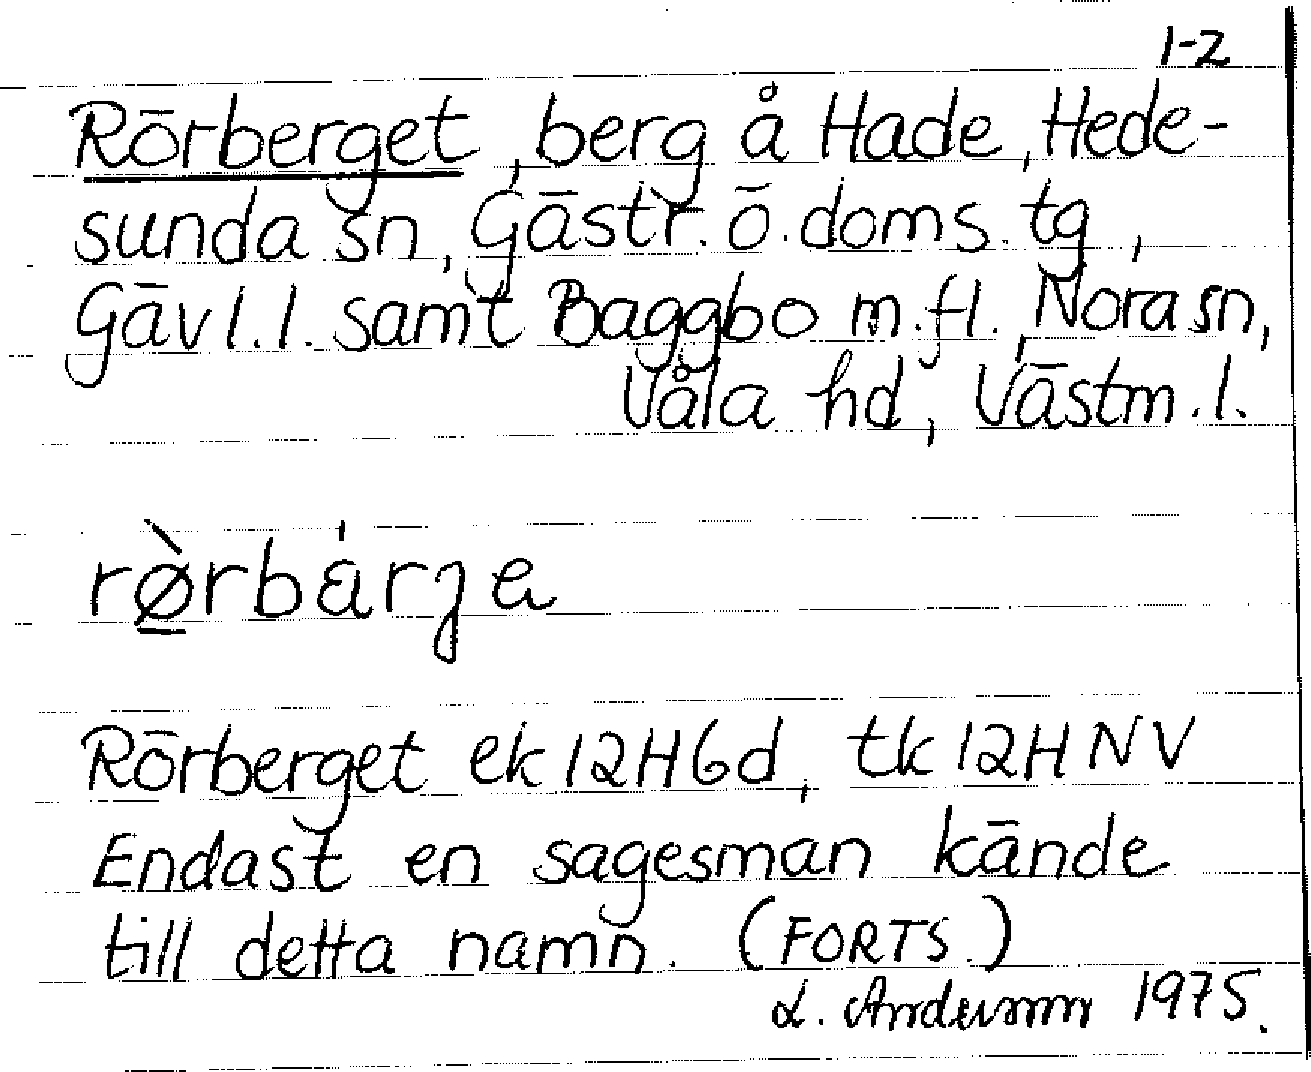 1-2
Rörberget, berg å Hade, Hede-
sunda sn, Gästr. ö. doms. tg,
Gävl. l. samt Baggbo m.fl., Nora sn,
Våla hd, Västm. l.
rø̀rbárʒe
Rörberget ek 12H6d, tk 12H NV
Endast en sagesman kände
till detta namn. (FORTS.)
L. Andersson 1975.